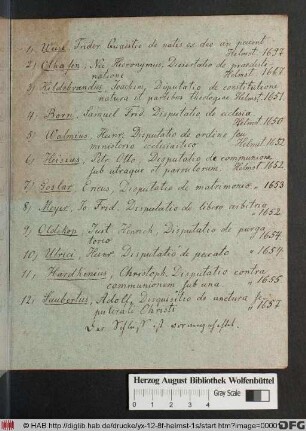 1)
Helmst. 1697
2) Olhafen, Nic. Hieronymus, Dissertatio de praedesti-
natione Helmst. 1667
3) Hildebrandus, Joachim, Disputatio de constitutione
natura et partibus theologiae Helmst. 1651.
4) Born, Samuel Frid. Disputatio de ecclesia
Helmst. 1650
5) Walmius, Henr. Disputatio de ordine seu
ministerio ecclesiastico Helmst. 1652.
6) Heisius, Otto, Disputatio de communione
sub utraque et parvulorum. Helmst. 1652.
7) Goslar, Disputatio de matrimonio " 1653
8) Meyer, Jo. Frid. Disputatio de libero arbitrio
" 1652.
9) Oldekop, Just. Henrich, Disputatio de purga
torio " 1654
10) Ulrici, Henr. Disputatio de peccato " 1654
11) Christoph. Disputatio contra
communionem sub una " 1655
12) Saubertus, Adolf, Disquisitio de unctura se-
pulcrali Christi " 1657
Herzog August Bibliothek Wolfenbüttel
Gray Scale
© HAB http://diglib.hab.de/drucke/yx-12-8f-helmst-1s/start.htm?image=00001
DFG